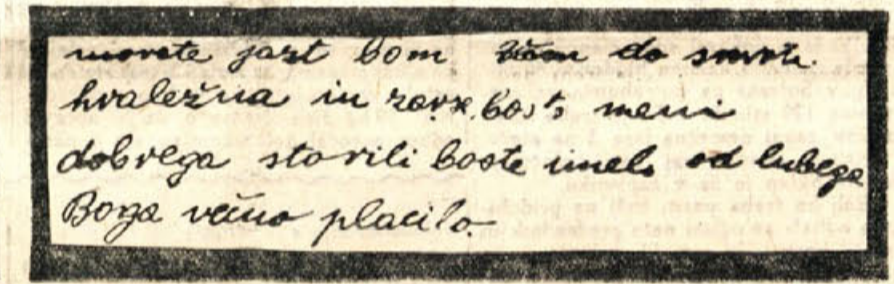 morete jast bom vam do smrti
hvaležna in zarx. boste meni
dobrega storili boste imele od lubega
Boga večno placilo.—